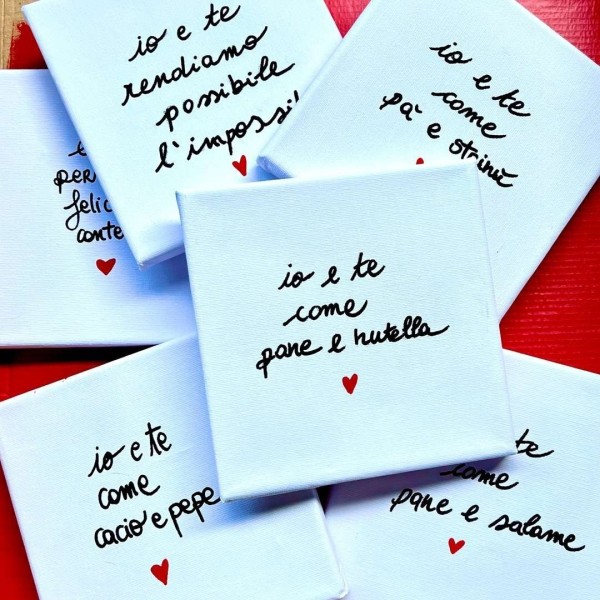 io e te
rendiamo
possibile
l'impossi
io e te
come
pa' e strinù
per
felic
conte
io e te
come
pane e nutella
io e te
come
cacio e pepe
te
come
pane e salame